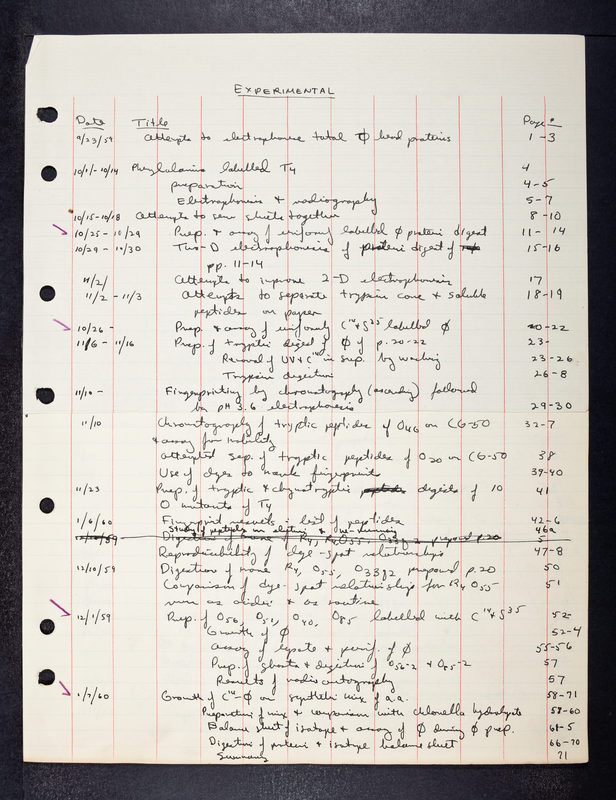 EXPERIMENTAL
Date Title Page
9/23/59 Attempts to electrophorese total ϕ head proteins 1-3
10/1/-10/14 Phenylalanine labelled T4 4
preparation 4-5
Electrophoresis & radiography 5-7
10/15-10/18 Attempts to sew sheets together 8-10
10/25-10/29 Prep. & assay of uniformly labelled ϕ protein digest 11-14
10/29-10/30 Two-D electrophoresis of protein digest of 15-16
pp. 11-14
11/2/ Attempts to improve 2-D electrophoresis 17
11/2-11/3 Attempts to separate trypsin core & soluble 18-19
peptides on paper
10/26- Prep & assay of uniformly C14 & S35 labelled ϕ 20-22
11/6-11/16 Prep. of tryptic digest of ϕ of p. 20-22 23-
Removal of UV & C14 in sup. by washing 23-26
Trypsin digestion 26-8
11/10- Fingerprinting by chromatography (ascending) followed
by pH 3.6 electrophoresis 29-30
11/10 Chromatography of tryptic peptides of O46 on CG-50 32-7
& assay for
Attempted sep. of tryptic peptides of O20 on CG-50 38
Use of dyes to mark fingerprints 39-40
11/23 Prep. of tryptic & chymotryptic digests of 10 41
O mutants of T4
1/6/60 Fingerprint results in test of peptides 42-6
Study of peptides in 46a
12/10/59 Digestion of more of R4, O55, O33g2 prepared p.20 5
Reproducibility of dye-spot relationships 47-8
12/10/59 Digestion of more R4, O55, O33g2 prepared p.20 50
Comparison of dye-spot relationships for R4 O55 51
run as & as routine
12/1/59 Prep. of O56, O51, O40, O85 labelled with C14 & S35 52-
Growth of ϕ 52-4
Assay of lysate & purif. of ϕ 55-56
Prep. of ghosts & digestion of O56-2 & O85-2 57
Results of radioautography 57
1/7/60 Growth of C14-ϕ on synthetic mix of a.a. 58-71
Preparation of mix & comparison with chlorella hydrolysate 58-60
Balance sheet of isotope & assay of ϕ during ϕ prep. 61-5
Digestion of protein & isotope balance sheet 66-70
Summary 71